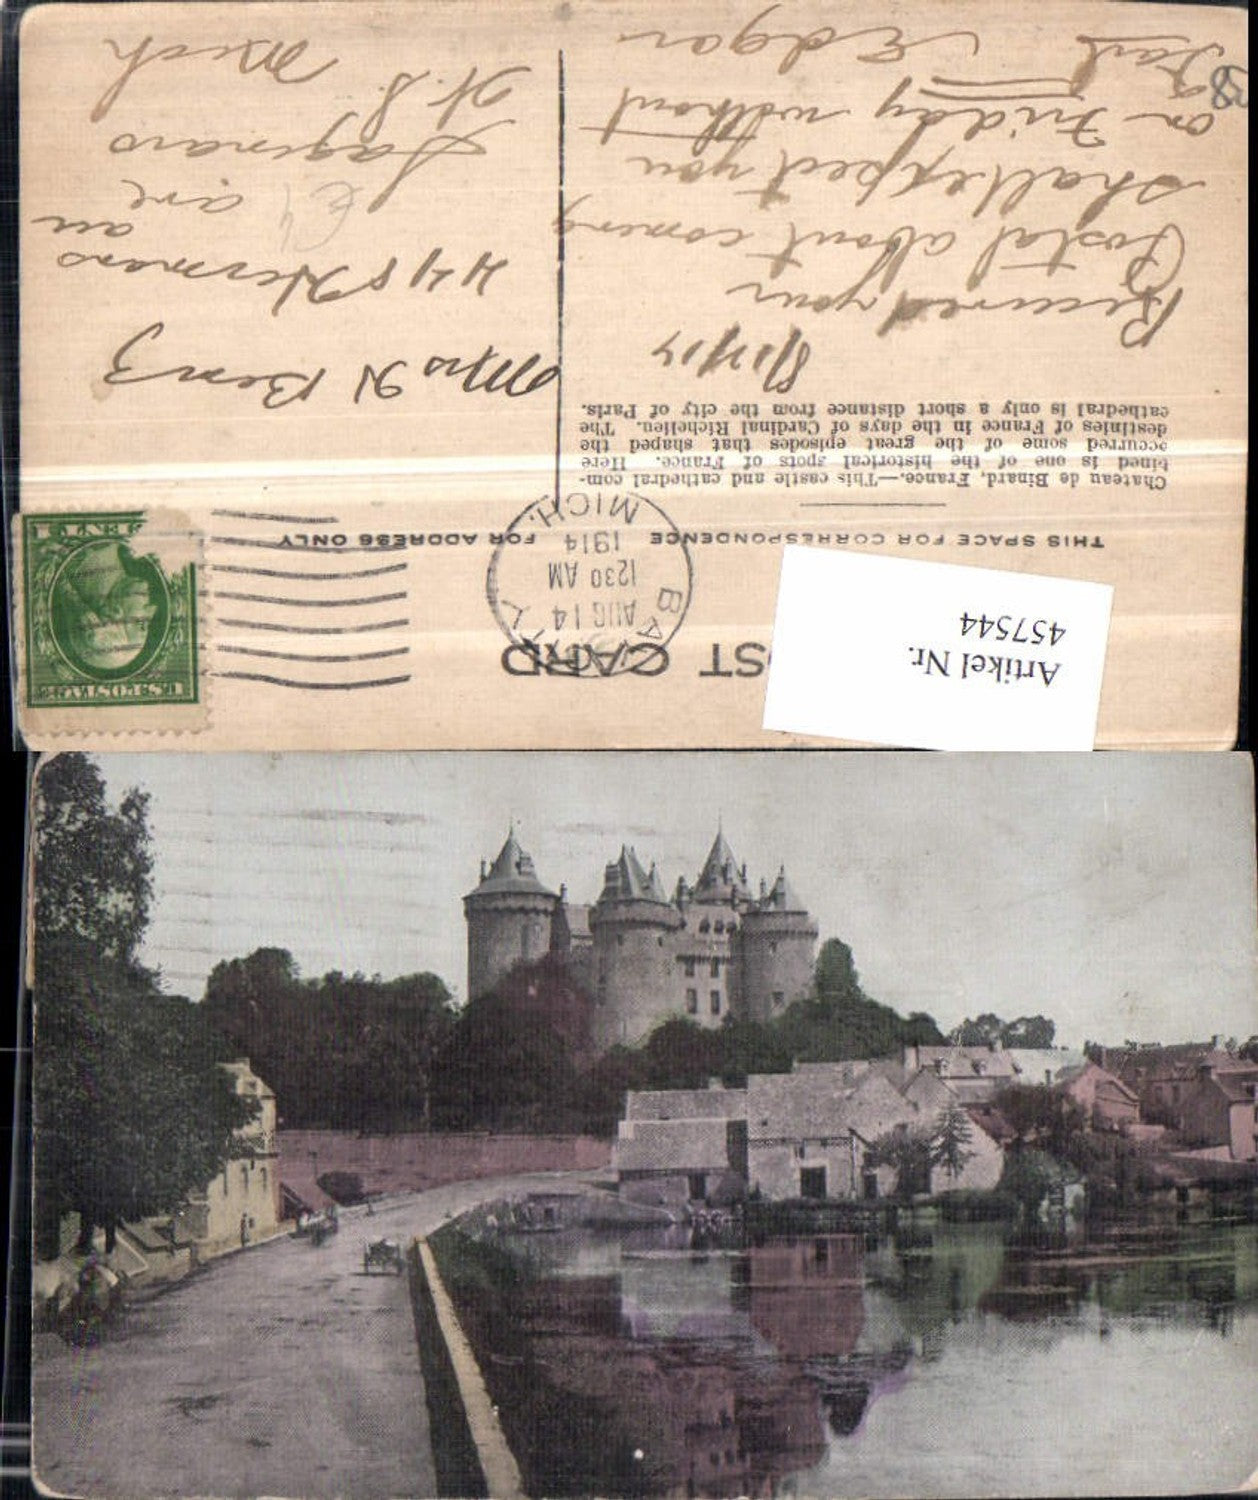 POST CARD
THIS SPACE FOR CORRESPONDENCE
FOR ADDRESS ONLY
Chateau de Binard, France.—This castle and cathedral com-
bined is one of the historical spots of France. Here
occurred some of the great episodes that shaped the
destinies of France in the days of Cardinal Richelieu. The
cathedral is only a short distance from the city of Paris.
Received your
Postal about coming
shall expect you
on Friday without
Fail Edgar
BAY
AUG 14
1230 AM
1914
MICH.
U.S. POSTAGE
Mrs H Benz
448 Hermans
au
are
Saginaw
W. S.
Mich
Artikel Nr.
457544